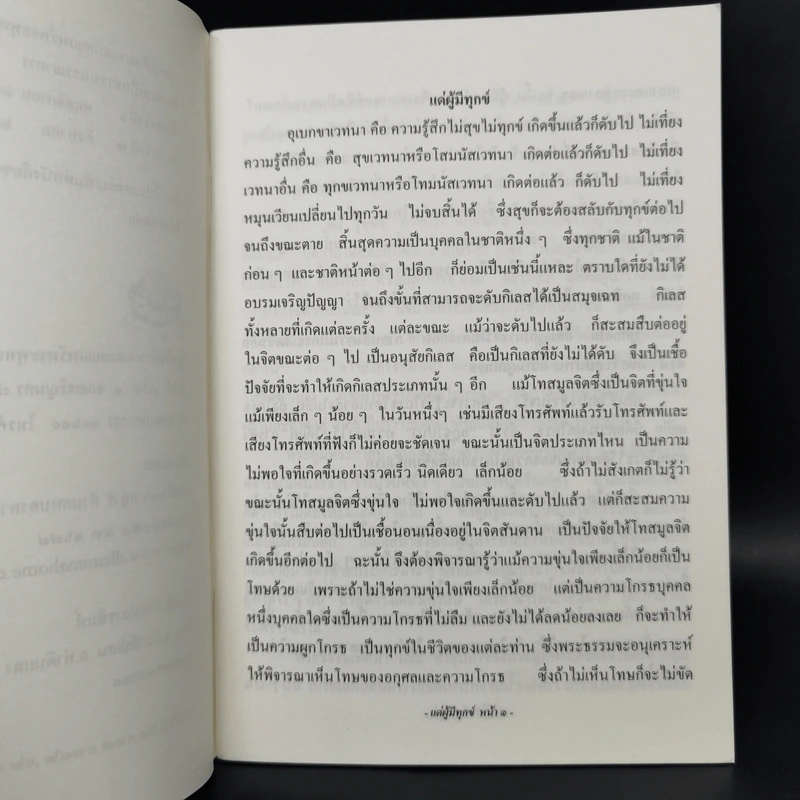 แด่ผู้มีทุกข์
อุเบกขาเวทนา คือ ความรู้สึกไม่สุขไม่ทุกข์ เกิดขึ้นแล้วก็ดับไป ไม่เที่ยง
ความรู้สึกอื่น คือ สุขเวทนาหรือโสมนัสเวทนา เกิดต่อแล้วก็ดับไป ไม่เที่ยง
เวทนาอื่น คือ ทุกขเวทนาหรือโทมนัสเวทนา เกิดต่อแล้ว ก็ดับไป ไม่เที่ยง
หมุนเวียนเปลี่ยนไปทุกวัน ไม่จบสิ้นได้ ซึ่งสุขก็จะต้องสลับกับทุกข์ต่อไป
จนถึงขณะตาย สิ้นสุดความเป็นบุคคลในชาติหนึ่ง ๆ ซึ่งทุกชาติ แม้ในชาติ
ก่อน ๆ และชาติหน้าต่อ ๆ ไปอีก ก็ย่อมเป็นเช่นนี้แหละ ตราบใดที่ยังไม่ได้
อบรมเจริญปัญญา จนถึงขั้นที่สามารถจะดับกิเลสได้เป็นสมุจเฉท กิเลส
ทั้งหลายที่เกิดแต่ละครั้ง แต่ละขณะ แม้ว่าจะดับไปแล้ว ก็สะสมสืบต่ออยู่
ในจิตขณะต่อ ๆ ไป เป็นอนุสัยกิเลส คือเป็นกิเลสที่ยังไม่ได้ดับ จึงเป็นเชื้อ
ปัจจัยที่จะทำให้เกิดกิเลสประเภทนั้น ๆ อีก แม้โทสมูลจิตซึ่งเป็นจิตที่ขุ่นใจ
แม้เพียงเล็ก ๆ น้อย ๆ ในวันหนึ่งๆ เช่นมีเสียงโทรศัพท์แล้วรับโทรศัพท์และ
เสียงโทรศัพท์ที่ฟังก็ไม่ค่อยจะชัดเจน ขณะนั้นเป็นจิตประเภทไหน เป็นความ
ไม่พอใจที่เกิดขึ้นอย่างรวดเร็ว นิดเดียว เล็กน้อย ซึ่งถ้าไม่สังเกตก็ไม่รู้ว่า
ขณะนั้นโทสมูลจิตซึ่งขุ่นใจ ไม่พอใจเกิดขึ้นและดับไปแล้ว แต่ก็สะสมความ
ขุ่นใจนั้นสืบต่อไปเป็นเชื้อนอนเนื่องอยู่ในจิตสันดาน เป็นปัจจัยให้โทสมูลจิต
เกิดขึ้นอีกต่อไป ฉะนั้น จึงต้องพิจารณารู้ว่าแม้ความขุ่นใจเพียงเล็กน้อยก็เป็น
โทษด้วย เพราะถ้าไม่ใช่ความขุ่นใจเพียงเล็กน้อย แต่เป็นความโกรธบุคคล
หนึ่งบุคคลใดซึ่งเป็นความโกรธที่ไม่ลืม และยังไม่ได้ลดน้อยลงเลย ก็จะทำให้
เป็นความผูกโกรธ เป็นทุกข์ในชีวิตของแต่ละท่าน ซึ่งพระธรรมจะอนุเคราะห์
ให้พิจารณาเห็นโทษของอกุศลและความโกรธ ซึ่งถ้าไม่เห็นโทษก็จะไม่ขัด
- แด่ผู้มีทุกข์ หน้า ๑ -